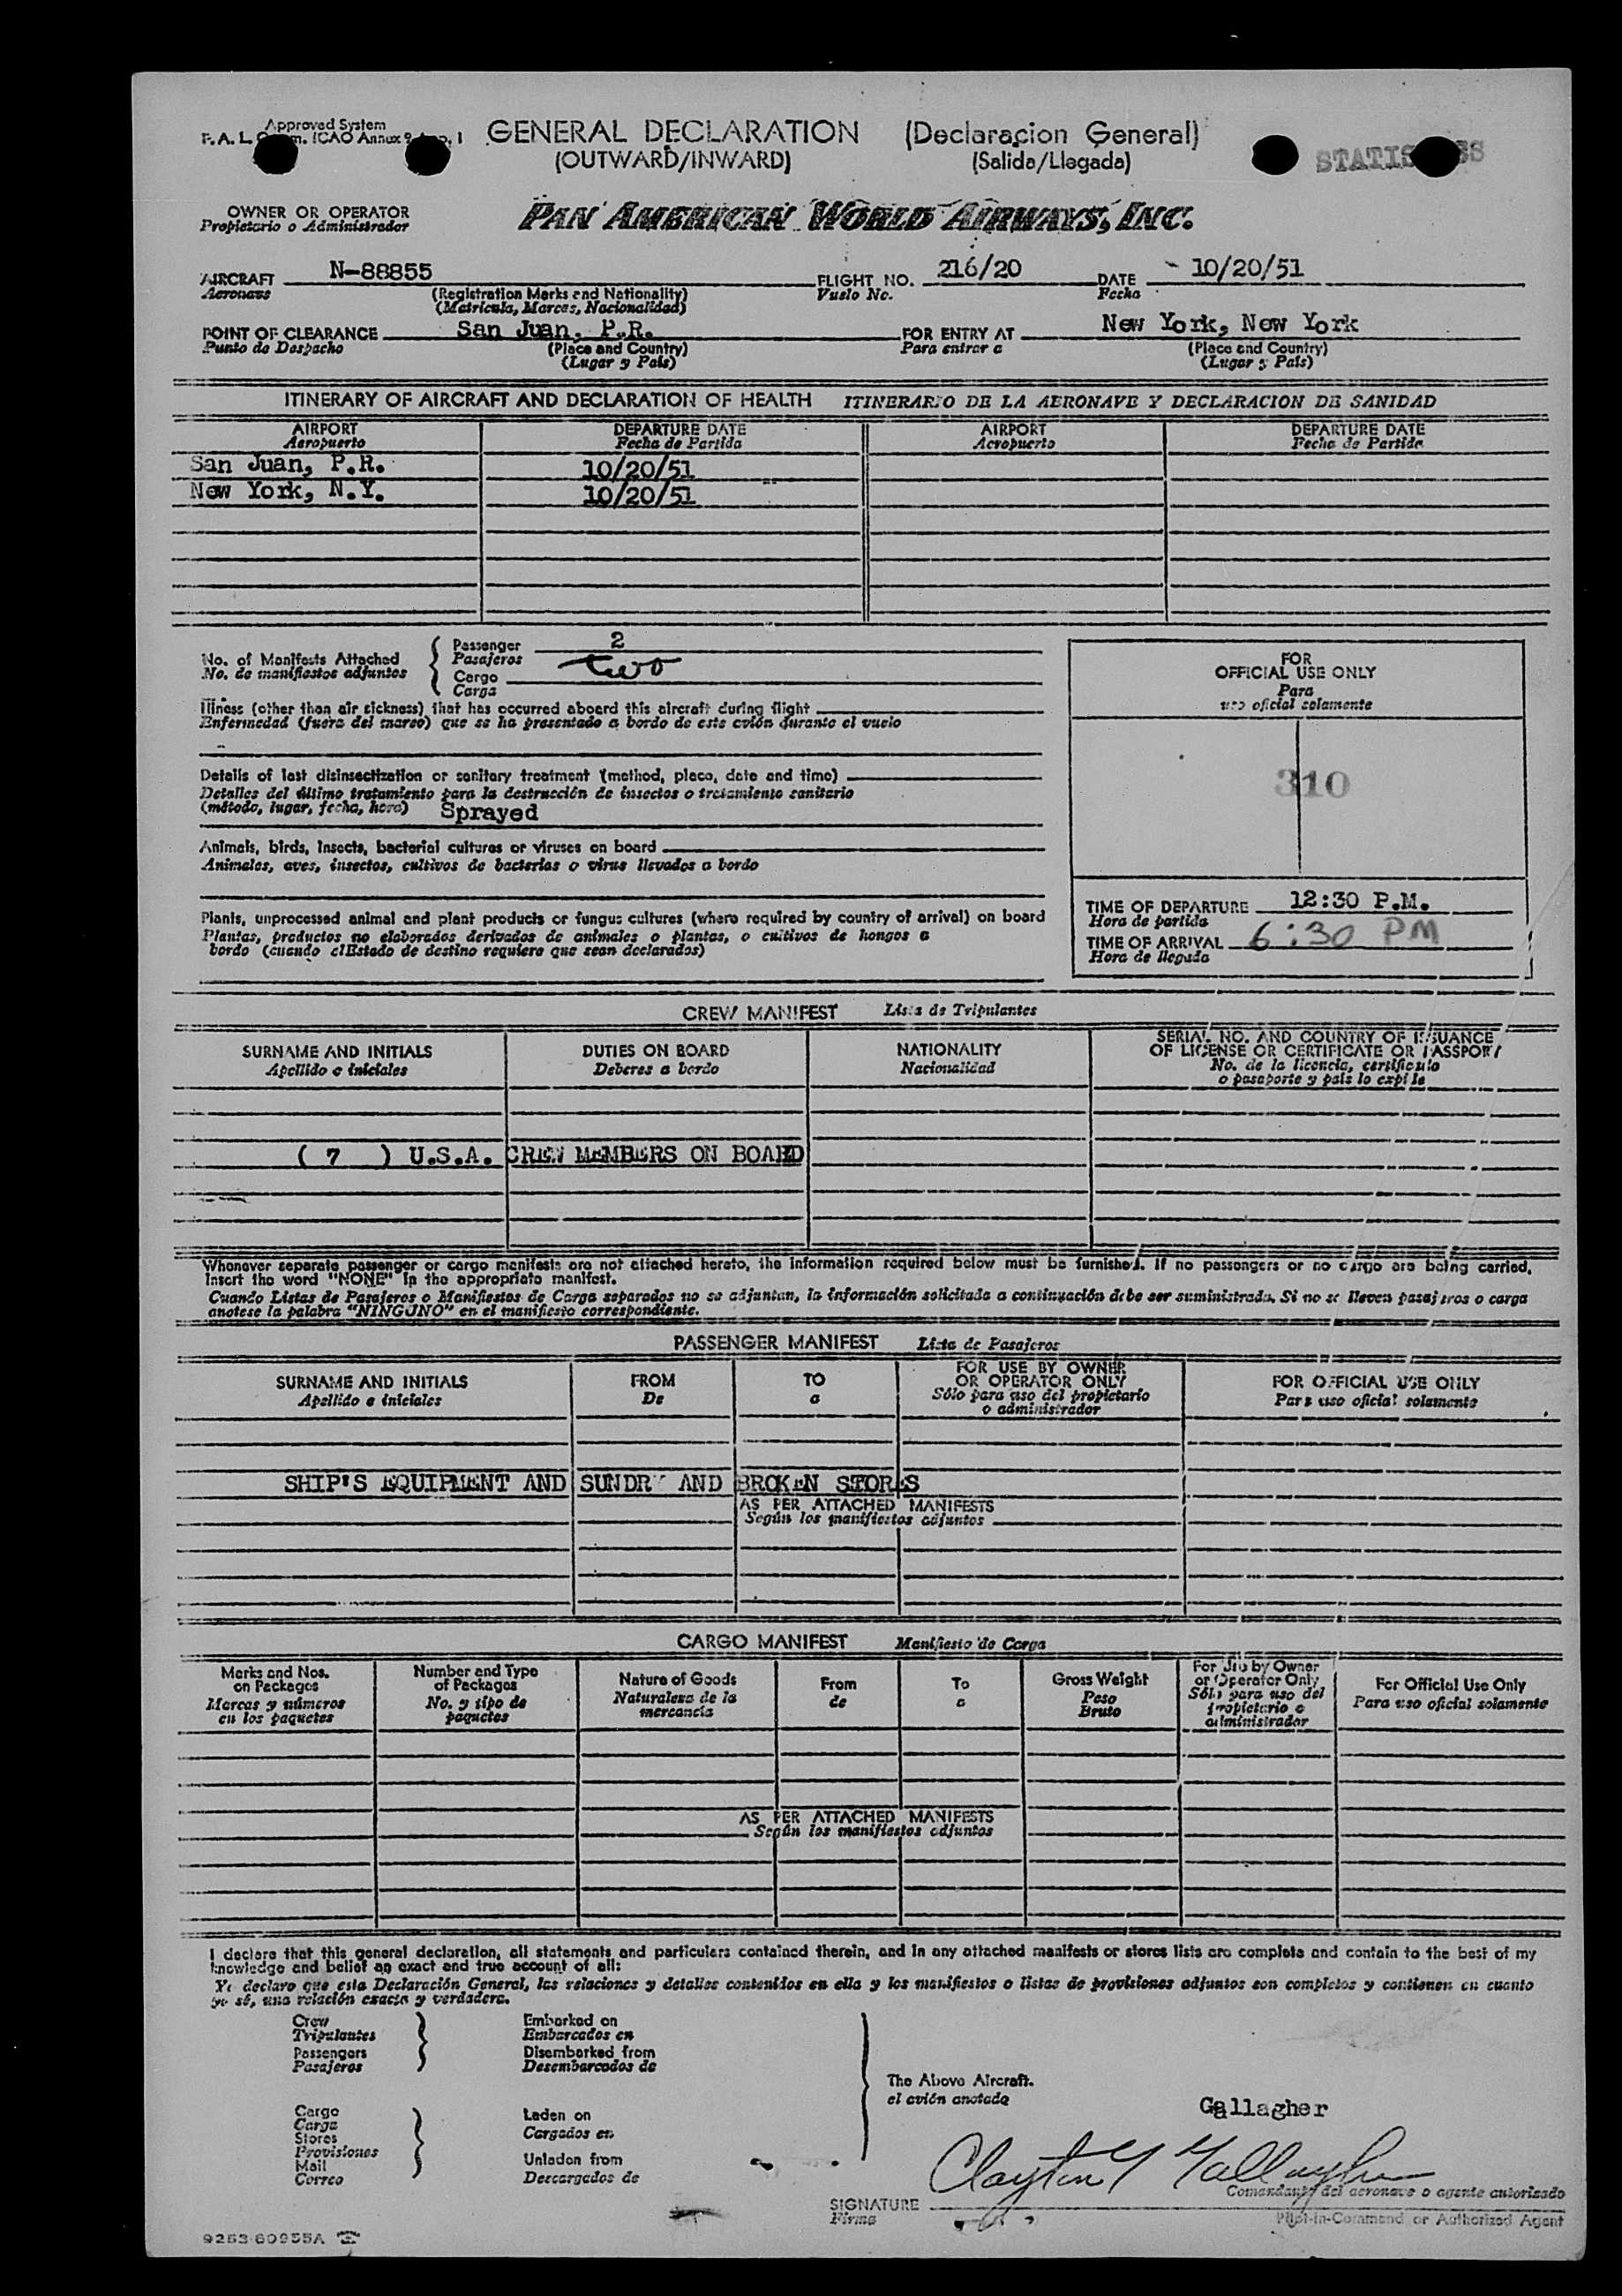 Approved System
GENERAL DECLARATION (Declaración General)
F. A. L. ICAO Annex 9
(OUTWARD/INWARD) (Salida/Llegada)
OWNER OR OPERATOR
Propietario o Administrador
PAN AMERICAN WORLD AIRWAYS, INC.
AIRCRAFT N-88855 FLIGHT NO. 216/20 DATE - 10/20/51
Aeronave (Registration Marks and Nationality) Vuelo No. Fecha
(Matricula, Marcas, Nacionalidad)
POINT OF CLEARANCE San Juan, P.R. FOR ENTRY AT New York, New York
Punto de Despacho (Place and Country) Para entrar a (Place and Country)
(Lugar y País) (Lugar y País)
ITINERARY OF AIRCRAFT AND DECLARATION OF HEALTH ITINERARIO DE LA AERONAVE Y DECLARACION DE SANIDAD
AIRPORT DEPARTURE DATE AIRPORT DEPARTURE DATE
Aeropuerto Fecha de Partida Aeropuerto Fecha de Partida
San Juan, P.R. 10/20/51
New York, N.Y. 10/20/51
No. of Manifests Attached
No. de manifiestos adjuntos
Passenger 2
Pasajeros two
Cargo
Carga
Illness (other than air sickness) that has occurred aboard this aircraft during flight
Enfermedad (fuera del mareo) que se ha presentado a bordo de este avión durante el vuelo
Details of last disinsectization or sanitary treatment (method, place, date and time)
Detalles del último tratamiento para la destrucción de insectos o tratamiento sanitario
(método, lugar, fecha, hora) Sprayed
Animals, birds, insects, bacterial cultures or viruses on board
Animales, aves, insectos, cultivos de bacterias o virus llevados a bordo
Plants, unprocessed animal and plant products or fungus cultures (where required by country of arrival) on board
Plantas, productos no elaborados derivados de animales o plantas, o cultivos de hongos a
bordo (cuando el Estado de destino requiere que sean declarados)
FOR
OFFICIAL USE ONLY
Para
uso oficial solamente
310
TIME OF DEPARTURE 12:30 P.M.
Hora de partida
TIME OF ARRIVAL 6:30 PM
Hora de llegada
CREW MANIFEST Lista de Tripulantes
SURNAME AND INITIALS DUTIES ON BOARD NATIONALITY SERIAL NO. AND COUNTRY OF ISSUANCE
OF LICENSE OR CERTIFICATE OR PASSPORT
Apellido e iniciales Deberes a bordo Nacionalidad No. de la licencia, certificado
o pasaporte y país lo expide
( 7 ) U.S.A. CREW MEMBERS ON BOARD
Whenever separate passenger or cargo manifests are not attached hereto, the information required below must be furnished. If no passengers or no cargo are being carried,
insert the word "NONE" in the appropriate manifest.
Cuando Listas de Pasajeros o Manifiestos de Carga separados no se adjuntan, la información solicitada a continuación debe ser suministrada. Si no se lleven pasajeros o carga
anotese la palabra "NINGUNO" en el manifiesto correspondiente.
PASSENGER MANIFEST Lista de Pasajeros
SURNAME AND INITIALS FROM TO FOR USE BY OWNER
OR OPERATOR ONLY FOR OFFICIAL USE ONLY
Apellido e iniciales De a Sólo para uso del propietario
o administrador Para uso oficial solamente
SHIP'S EQUIPMENT AND SUNDRY AND BROKEN STORES
AS PER ATTACHED MANIFESTS
Según los manifiestos adjuntos
CARGO MANIFEST Manifiesto de Carga
Marks and Nos.
on Packages
Marcas y números
en los paquetes
Number and Type
of Packages
No. y tipo de
paquetes
Nature of Goods
Naturaleza de la
mercancía
From
de
To
a
Gross Weight
Peso
Bruto
For Use by Owner
or Operator Only
Sólo para uso del
propietario o
administrador
For Official Use Only
Para uso oficial solamente
AS PER ATTACHED MANIFESTS
Según los manifiestos adjuntos
I declare that this general declaration, all statements and particulars contained therein, and in any attached manifests or stores lists are complete and contain to the best of my
knowledge and belief an exact and true account of all:
Yo declaro que esta Declaración General, las relaciones y detalles contenidos en ella y los manifiestos o listas de provisiones adjuntos son completos y contienen en cuanto
yo sé, una relación exacta y verdadera.
Crew
Tripulantes
Passengers
Pasajeros
Embarked on
Embarcados en
Disembarked from
Desembarcados de
Cargo
Carga
Stores
Provisiones
Mail
Correo
Laden on
Cargados en
Unladen from
Descargados de
The Above Aircraft.
el avión anotado
Gallagher
Clayton Y Gallagher
Comandante del aeronave o agente autorizado
SIGNATURE
Firma
Pilot-in-Command or Authorized Agent
9263 60955A